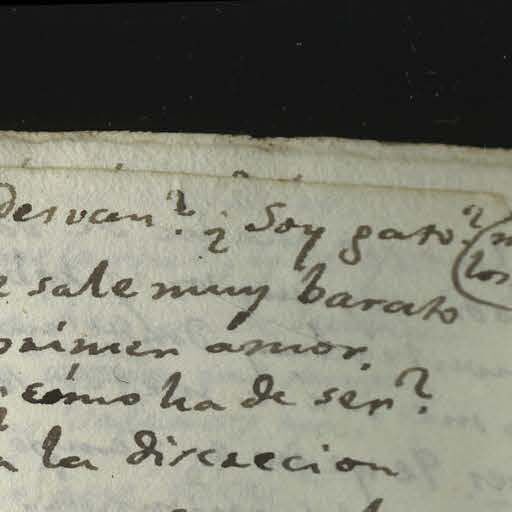 desvan? ¿Soy gato?
sale muy barato
primer amor.
¿cómo ha de ser?
la discrecion